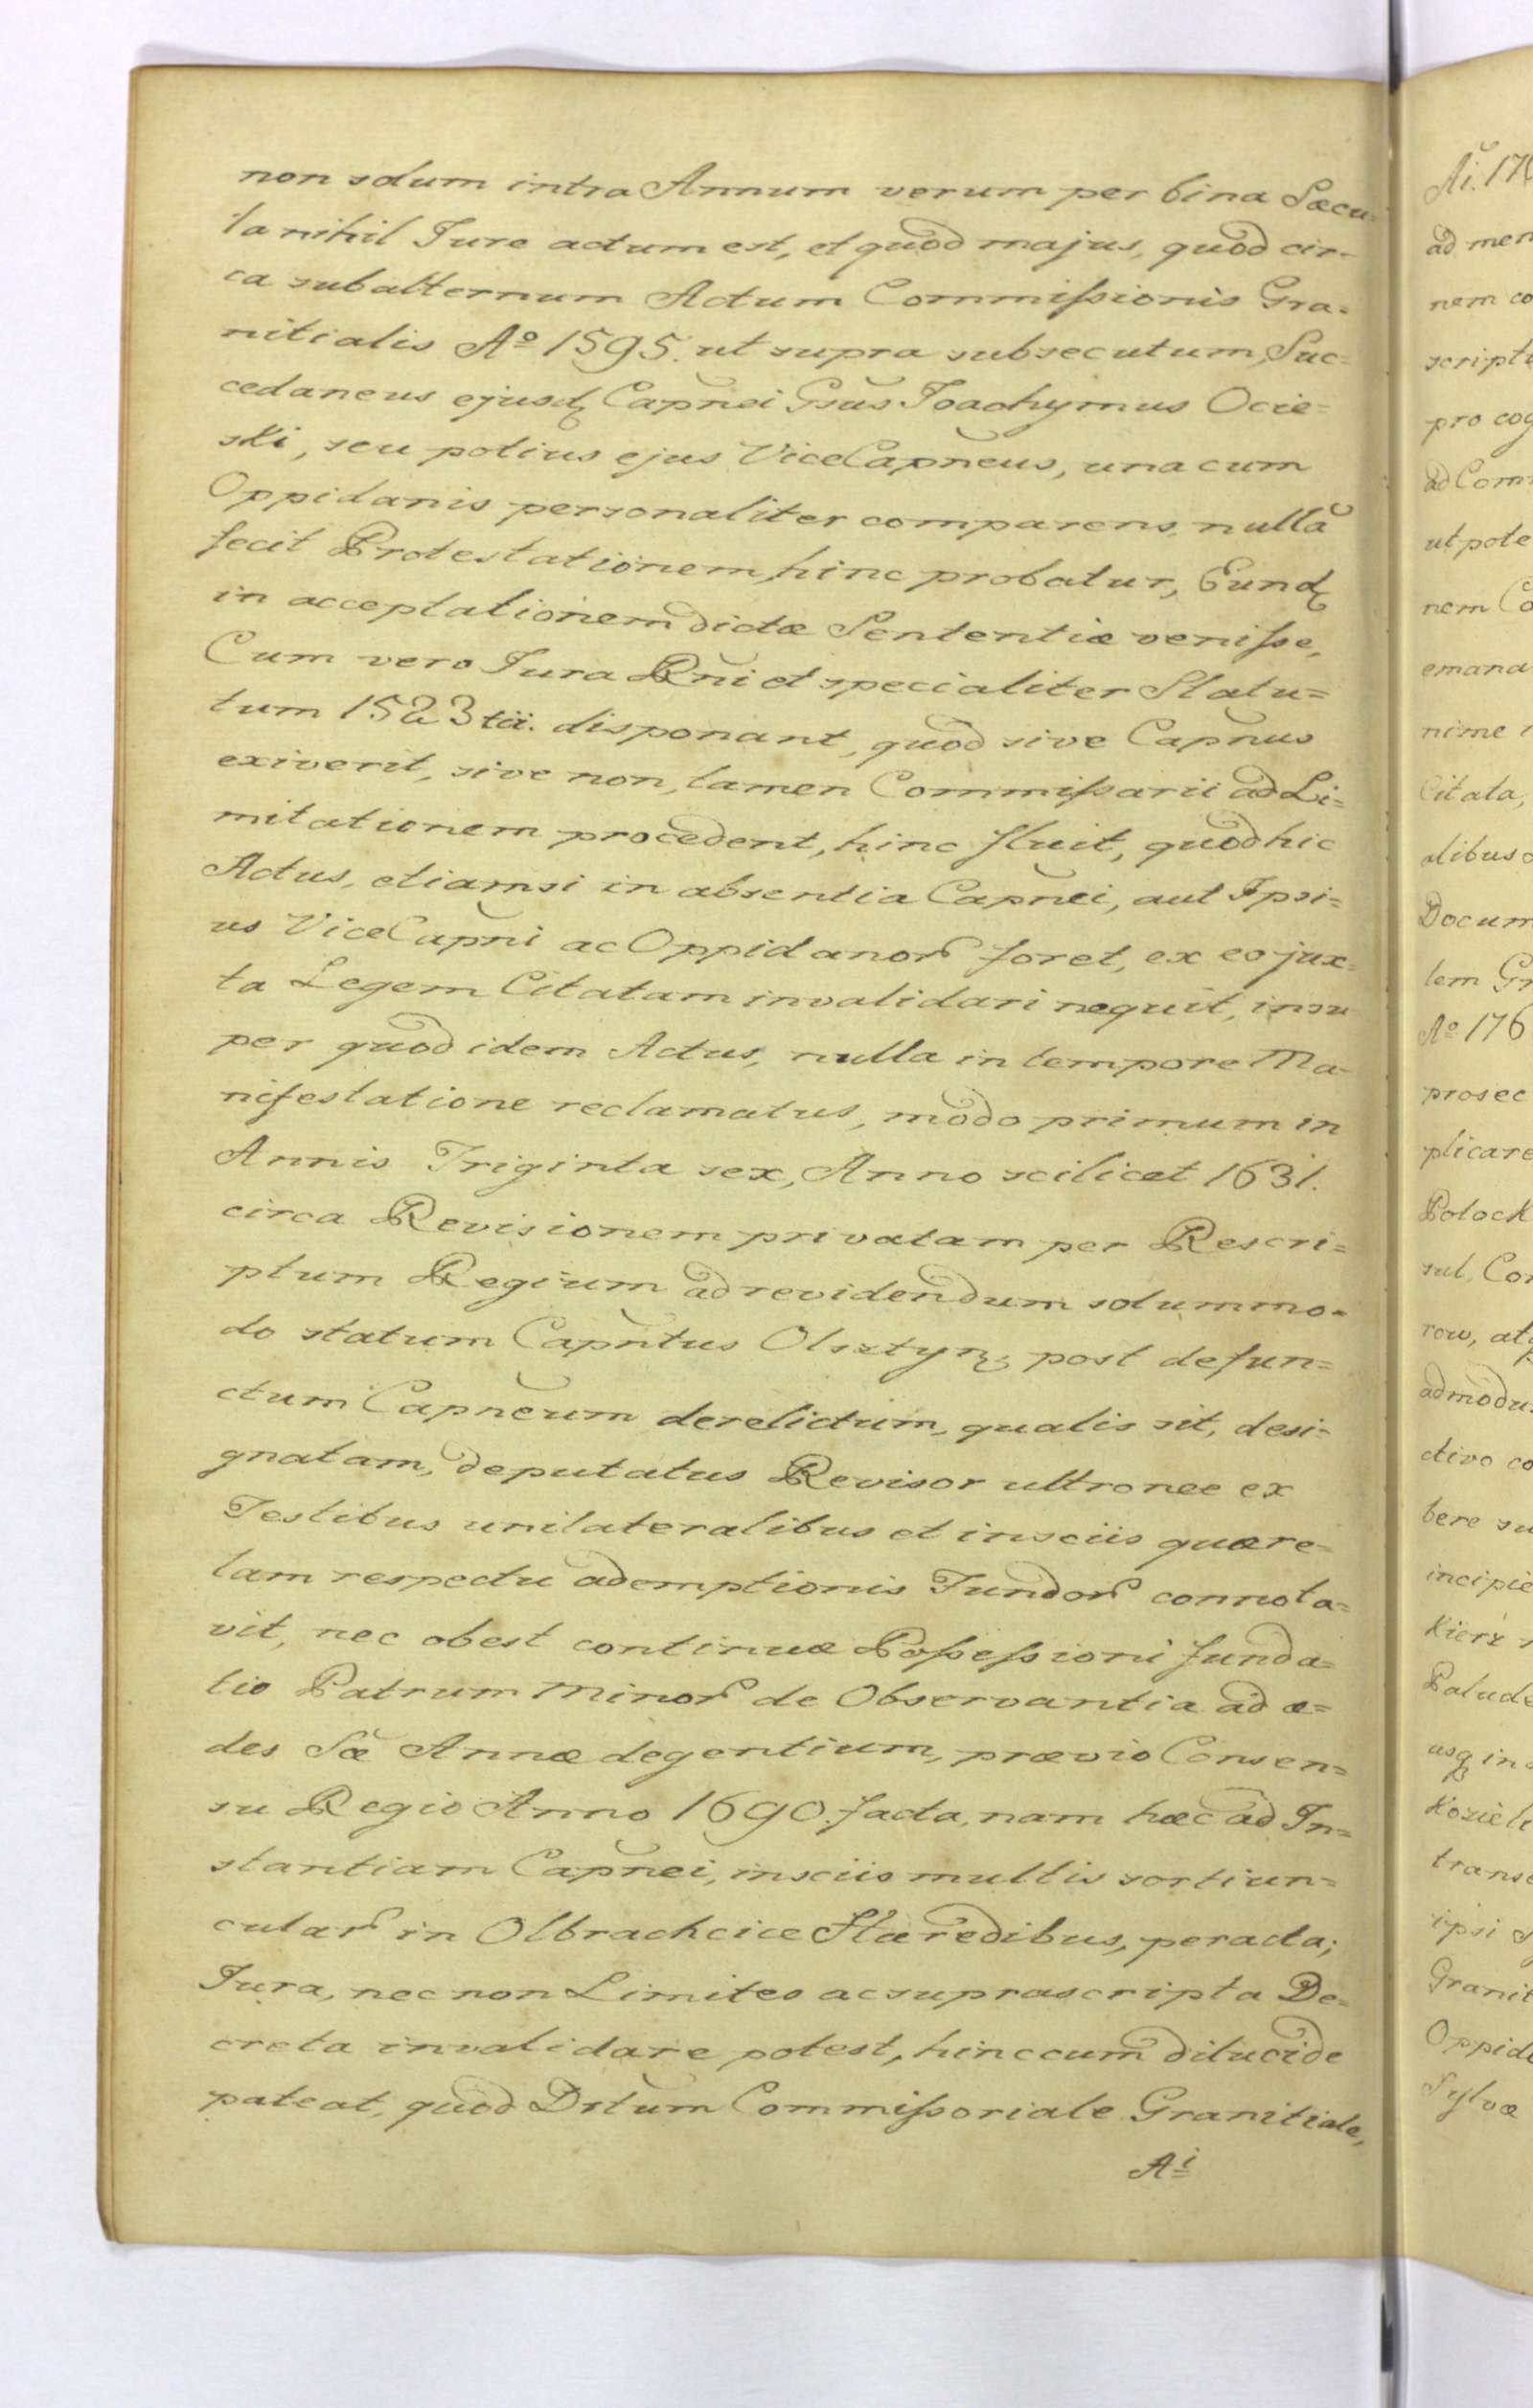 non solum intra Annum verum per bina Sæcu=
la nihil Jure actum est, et quod majus, quod cir=
ca subalternum Actum Commißionis Gra=
nitialis Aº 1595. ut supra subsecutum, Suc=
cedaneus ejusdꝫ Capnei Gsus Joachymus Ocie=
ski, seu potius ejus ViceCapneus, una cum
Oppidanis personaliter comparens, nullã
fecit Protestationem, hinc probatur, Eundꝫ
in acceptationem dictæ Sententiæ venißse,
Cum vero Jura Rni et specialiter Statu=
tum 1523 tii. disponant, quod sive Capnus
exiverit, sive non, tamen Commißarii ad Li=
mitationem procedent, hinc fluit, quod hic
Actus, etiamsi in absentia Capnei, aut Ipsi=
us ViceCapni ac Oppidanor foret, ex eo jux=
ta Legem Citatam invalidari nequit, insu
per quod idem Actus, nulla in tempore Ma=
nifestatione reclamatus, modo primum in
Annis Triginta sex, Anno scilicet 1631.
circa Revisionem privatam per Rescri=
ptum Regium ad revidendum solummo=
do statum Capntus Olsztyn, post defun=
ctum Capneum derelictum, qualis sit, desi=
gnatam, deputatus Revisor ultronee ex
Testibus unilateralibus et insciis quære=
lam respectu ademptionis Fundor connota=
vit, nec obest continuæ Poßeßioni funda=
tio Patrum Minor de Observantia ad æ=
des Sæ Annæ degentium, prævio Consen=
su Regio Anno 1690. facta, nam hæc ad In=
stantiam Capnei, insciis multis sortiun=
cular in Olbrachcice Hæredibus, peracta;
Jura, nec non Limites ac suprascripta De=
creta invalidare potest, hinc cum dilucide
pateat, quod Drtum Commißoriale Granitiale,
Ai
Ai. 17
ad men
nem co
scripti
pro cog
ad Com
ut pote
nem Co
emana
nime
Citata,
libus
Docum
lem Gr
Aº 176
prosec
plicare
Polock
sul, Cor
row, atq
admodu
ctivo co
bere su
incipie
Kierz
Palude
usq in
Koziel
trans
ipsi
Granit
Oppid
Sylvæ